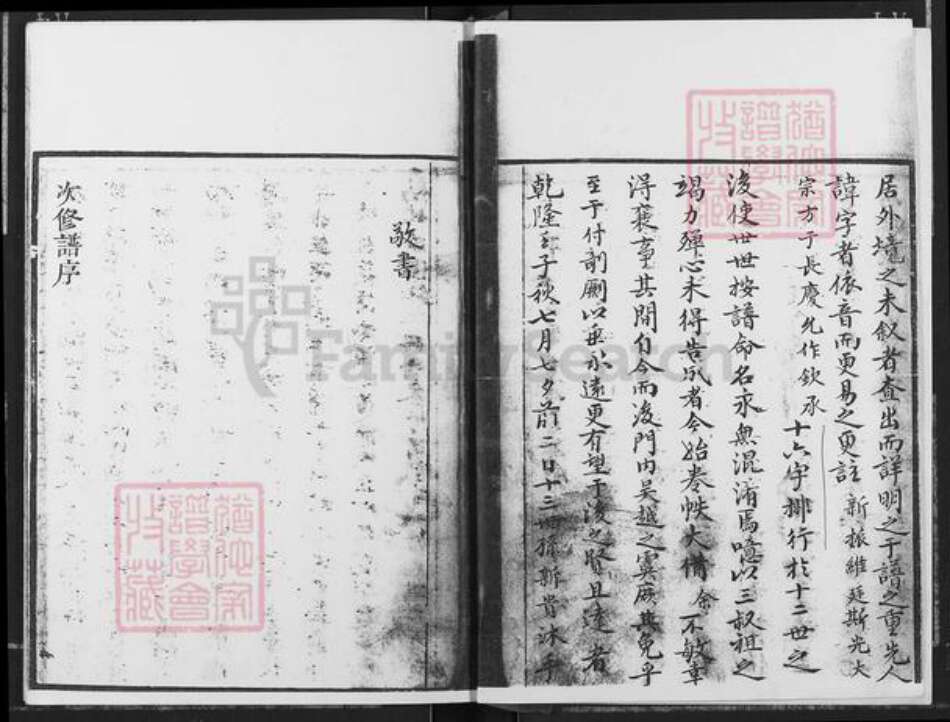 居外境之未叙者查出而詳明之于譜之重先人
諱字者依音而更易之更註新振維廷斯光大
宗方于長慶允作欽承十六字排行於十二世之
後使世世按譜命名永無混淆焉噫以三叔祖之
竭力殫心未得告成者今始卷帙大備余不敏幸
得襄事其間自今而後門內吴越之異庶其免乎
至于付剞劂以垂永遠更有望于後之賢且達者
乾隆子秋七月七夕前二日十三孫斯貴沐手
敬書
次修譜序
譜學會
收藏
譜學會
收藏
FamilySearch